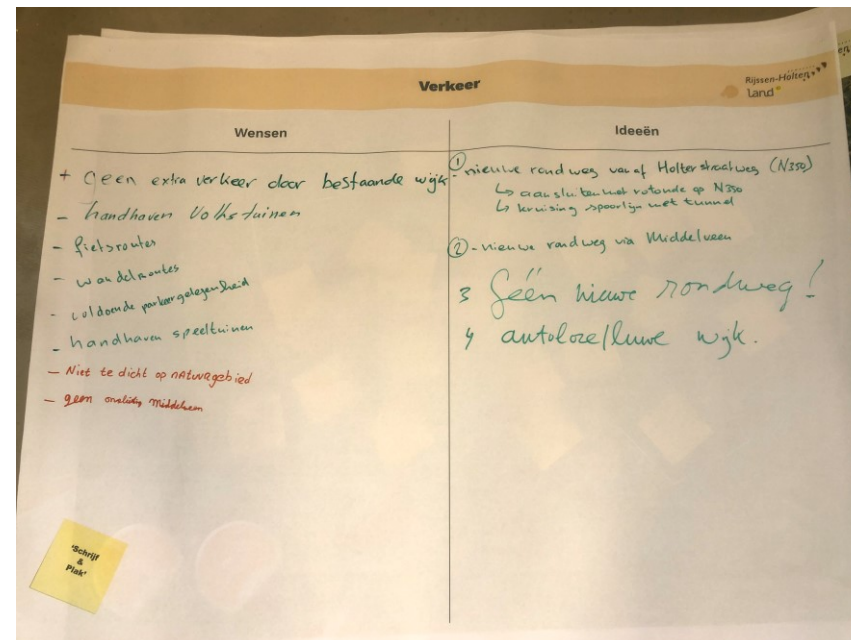 Verkeer
Rijssen-Holten
Land
Wensen
+ geen extra verkeer door bestaande wijk
- handhaven Volkstuinen
- fietsroutes
- wandelroutes
- voldoende parkeergelegenheid
- handhaven speeltuinen
- Niet te dicht op natuurgebied
- geen Middelveen
Ideeën
① - nieuwe rondweg vanaf Holterstraatweg (N350)
↳ aansluiten met rotonde op N350
↳ kruising spoorlijn met tunnel
② - nieuwe rondweg via Middelveen
3 Géén nieuwe rondweg!
4 autoloze/luwe wijk.
'Schrijf
&
Plak'